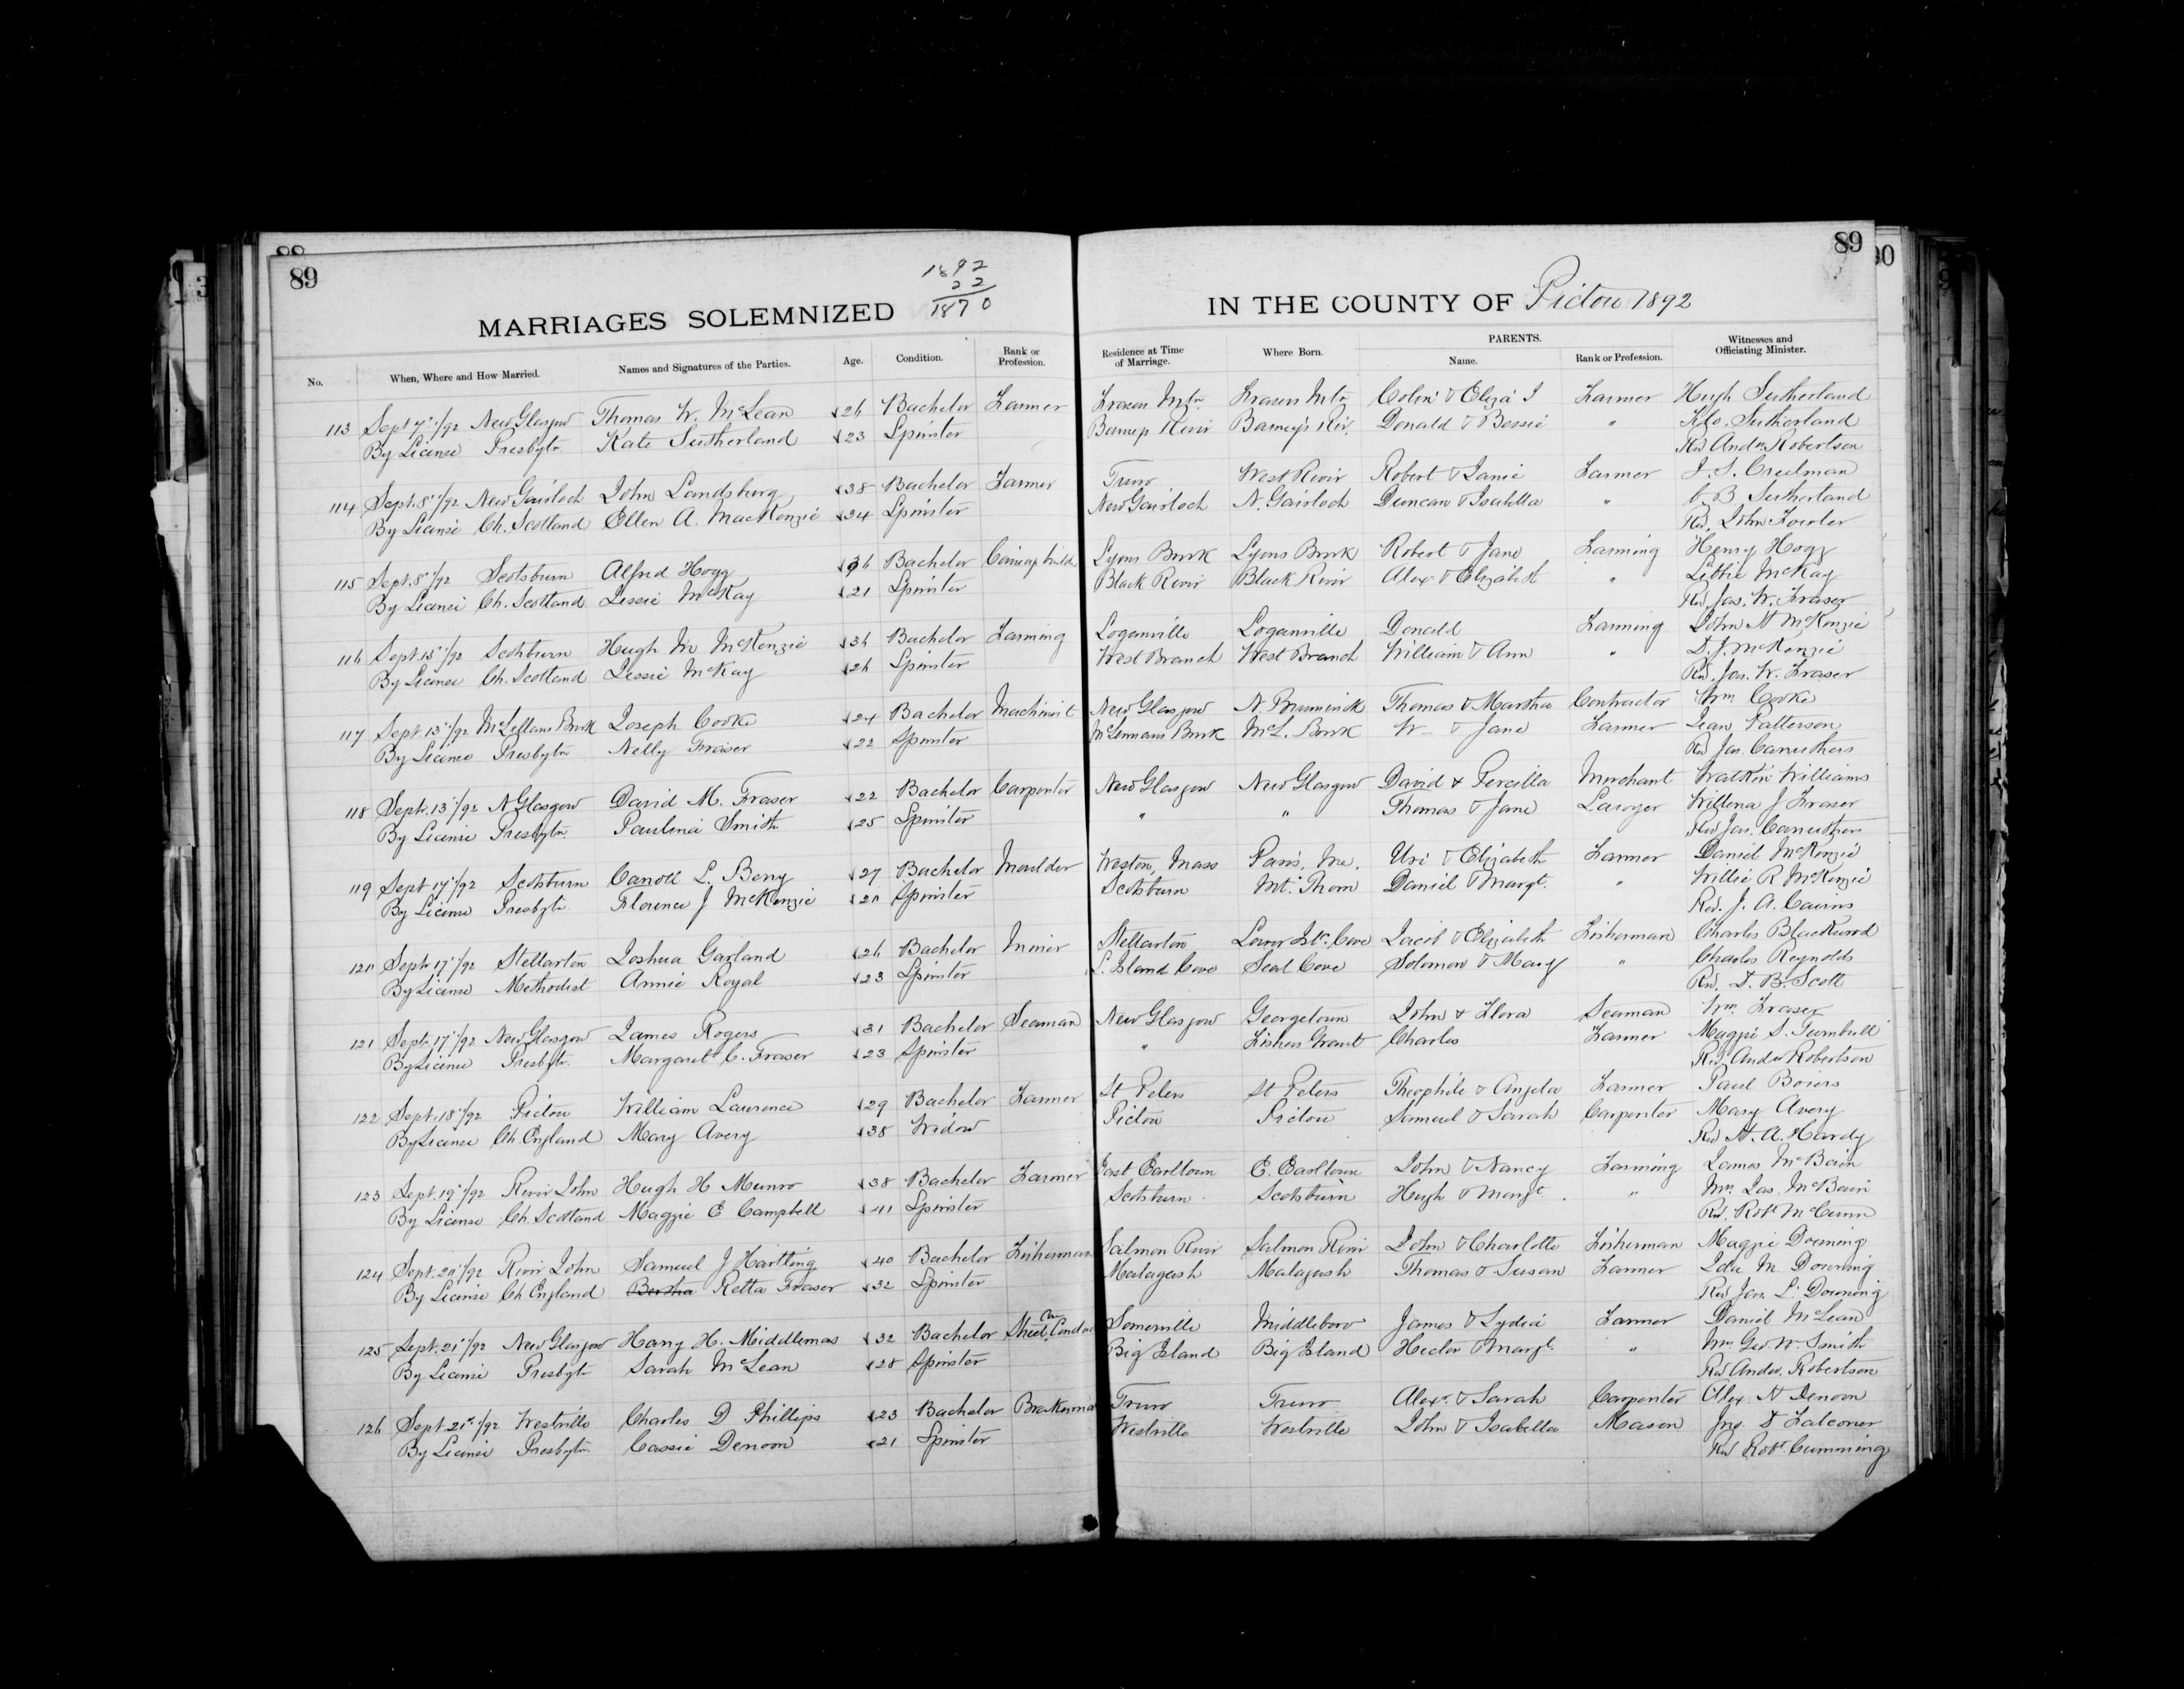 88
89
89
90
1892
22
1870
MARRIAGES SOLEMNIZED IN THE COUNTY OF Pictou 1892
No. When, Where and How Married. Names and Signatures of the Parties. Age. Condition. Rank or Profession. Residence at Time of Marriage. Where Born. PARENTS. Name. Rank or Profession. Witnesses and Officiating Minister.
113 Sept 7th/92 New Glasgow Thomas W. McLean 26 Bachelor Farmer Frasers Mtn Frasers Mtn Colin & Eliza J Farmer Hugh Sutherland
By License Presbytn Kate Sutherland 23 Spinster Barneys River Barney's Riv. Donald & Bessie " Sutherland
Rev Andw Robertson
114 Sept. 8th/92 New Gairloch John Landsburg 38 Bachelor Farmer Truro West River Robert & Janie Farmer J. S. Creelman
By License Ch. Scotland Ellen A. MacKenzie 34 Spinster New Gairloch N. Gairloch Duncan & Isabella " B. Sutherland
Rev. John Fowler
115 Sept. 8th/92 Scotsburn Alfred Hogg Bachelor Carriage build Lyons Brook Lyons Brook Robert & Jane Farming Henry Hogg
By License Ch. Scotland Jessie McKay 21 Spinster Black River Black River Alex & Elizabeth " Libbie McKay
Rev. Jas. W. Fraser
116 Sept. 15th/92 Scotsburn Hugh Mc McKenzie 36 Bachelor Farming Loganville Loganville Donald Farming John H McKenzie
By License Ch. Scotland Jessie McKay 26 Spinster West Branch West Branch William & Ann " D. J. McKenzie
Rev. Jas. W. Fraser
117 Sept. 13th/92 McLellans Brook Joseph Cooke 24 Bachelor Machinist New Glasgow N. Brunswick Thomas & Martha Contractor Wm Cooke
By License Presbytn Nelly Fraser 22 Spinster McLennans Brook McL. Brook W & Jane Farmer Jean Patterson
Rev Jas. Carruthers
118 Sept. 13th/92 N Glasgow David M. Fraser 22 Bachelor Carpenter New Glasgow New Glasgow David & Percilla Merchant Watkin Williams
By License Presbytn. Paulina Smith 25 Spinster " " Thomas & Jane Lawyer Willena J Fraser
Rev Jas. Carruthers
119 Sept 17th/92 Scotsburn Carroll L. Berry 27 Bachelor Moulder Weston, Mass Paris, Me. Uri & Elizabeth Farmer Daniel McKenzie
By License Presbytn. Florence J McKenzie 20 Spinster Scotsburn Mt. Thom Daniel & Margt. " Willie R McKenzie
Rev. J. A. Cairns
120 Sept 17th/92 Stellarton Joshua Garland 26 Bachelor Miner Stellarton Lower Isld. Cove Jacob & Elizabeth Fisherman Charles Blackwood
By License Methodist Annie Royal 23 Spinster L. Island Cove Seal Cove Solomon & Mary " Charles Reynolds
Rev. D. B. Scott
121 Sept. 17th/92 New Glasgow James Rogers 31 Bachelor Seaman New Glasgow Georgetown John & Flora Seaman Wm. Fraser
By License Presbytn. Margaret C. Fraser 23 Spinster " Fishers Grant Charles Farmer Maggie S. Turnbull
Rev. Andw Robertson
122 Sept. 18th/92 Pictou William Lawrence 29 Bachelor Farmer St Peters St Peters Theophile & Angela Farmer Paul Boiers
By License Ch England Mary Avery 38 Widow Pictou Pictou Samuel & Sarah Carpenter Mary Avery
Rev H. A. Hardy
123 Sept. 19th/92 River John Hugh H Munro 38 Bachelor Farmer East Earltown E. Earltown John & Nancy Farming James McBain
By License Ch. Scotland Maggie E Campbell 41 Spinster Scotsburn Scotsburn Hugh & Margt. " Mrs. Jas. McBain
Rev. Robt McCunn
124 Sept. 20th/92 River John Samuel J Hartling 40 Bachelor Fisherman Salmon River Salmon River John & Charlotte Fisherman Maggie Downing
By License Ch England Bertha Retta Fraser 32 Spinster Malagash Malagash Thomas & Susan Farmer Ida M. Downing
Rev Jas. L. Downing
125 Sept. 21st/92 New Glasgow Harry H. Middlemas 32 Bachelor Street Car Conduc Somerville Middleboro James & Lydia Farmer Daniel McLean
By License Presbytn Sarah McLean 28 Spinster Big Island Big Island Hector & Margt. " Mrs Geo. W. Smith
Rev Andw. Robertson
126 Sept. 21st/92 Westville Charles D Phillips 23 Bachelor Brakeman Truro Truro Alexr. & Sarah Carpenter Alex. H Denoon
By License Presbytn Cassie Denoon 21 Spinster Westville Westville John & Isabella Mason Jno. D Falconer
Rev Robt. Cumming